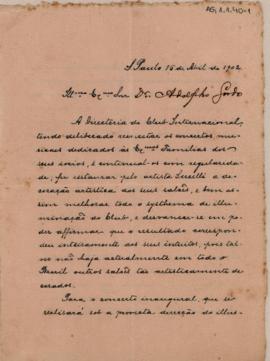 AG.1.1.40-1
S. Paulo 15 de Abril de 1902
Illmo Exmo Snr Dr. Adolpho Gordo
A Directoria do Club Internacional,
tendo deliberado encetar os concertos mu-
sicaes dedicados às Exmas Familias dos
seus socios, e continual-os com regularida-
de, fez restaurar pelo artista a de-
coração artistica dos seus salões, e bem as-
sim melhorar todo o systhema de illu-
minação do Club, e desvanece-se em po-
der affirmar que o resultado correspon-
deu inteiramente aos seus intuitos, pois tal-
vez não haja actualmente em todo o
Brasil outros salões tão artisticamente de-
corados.
Para o concerto inaugural, que se
realisará sob a provecta direcção do illus-